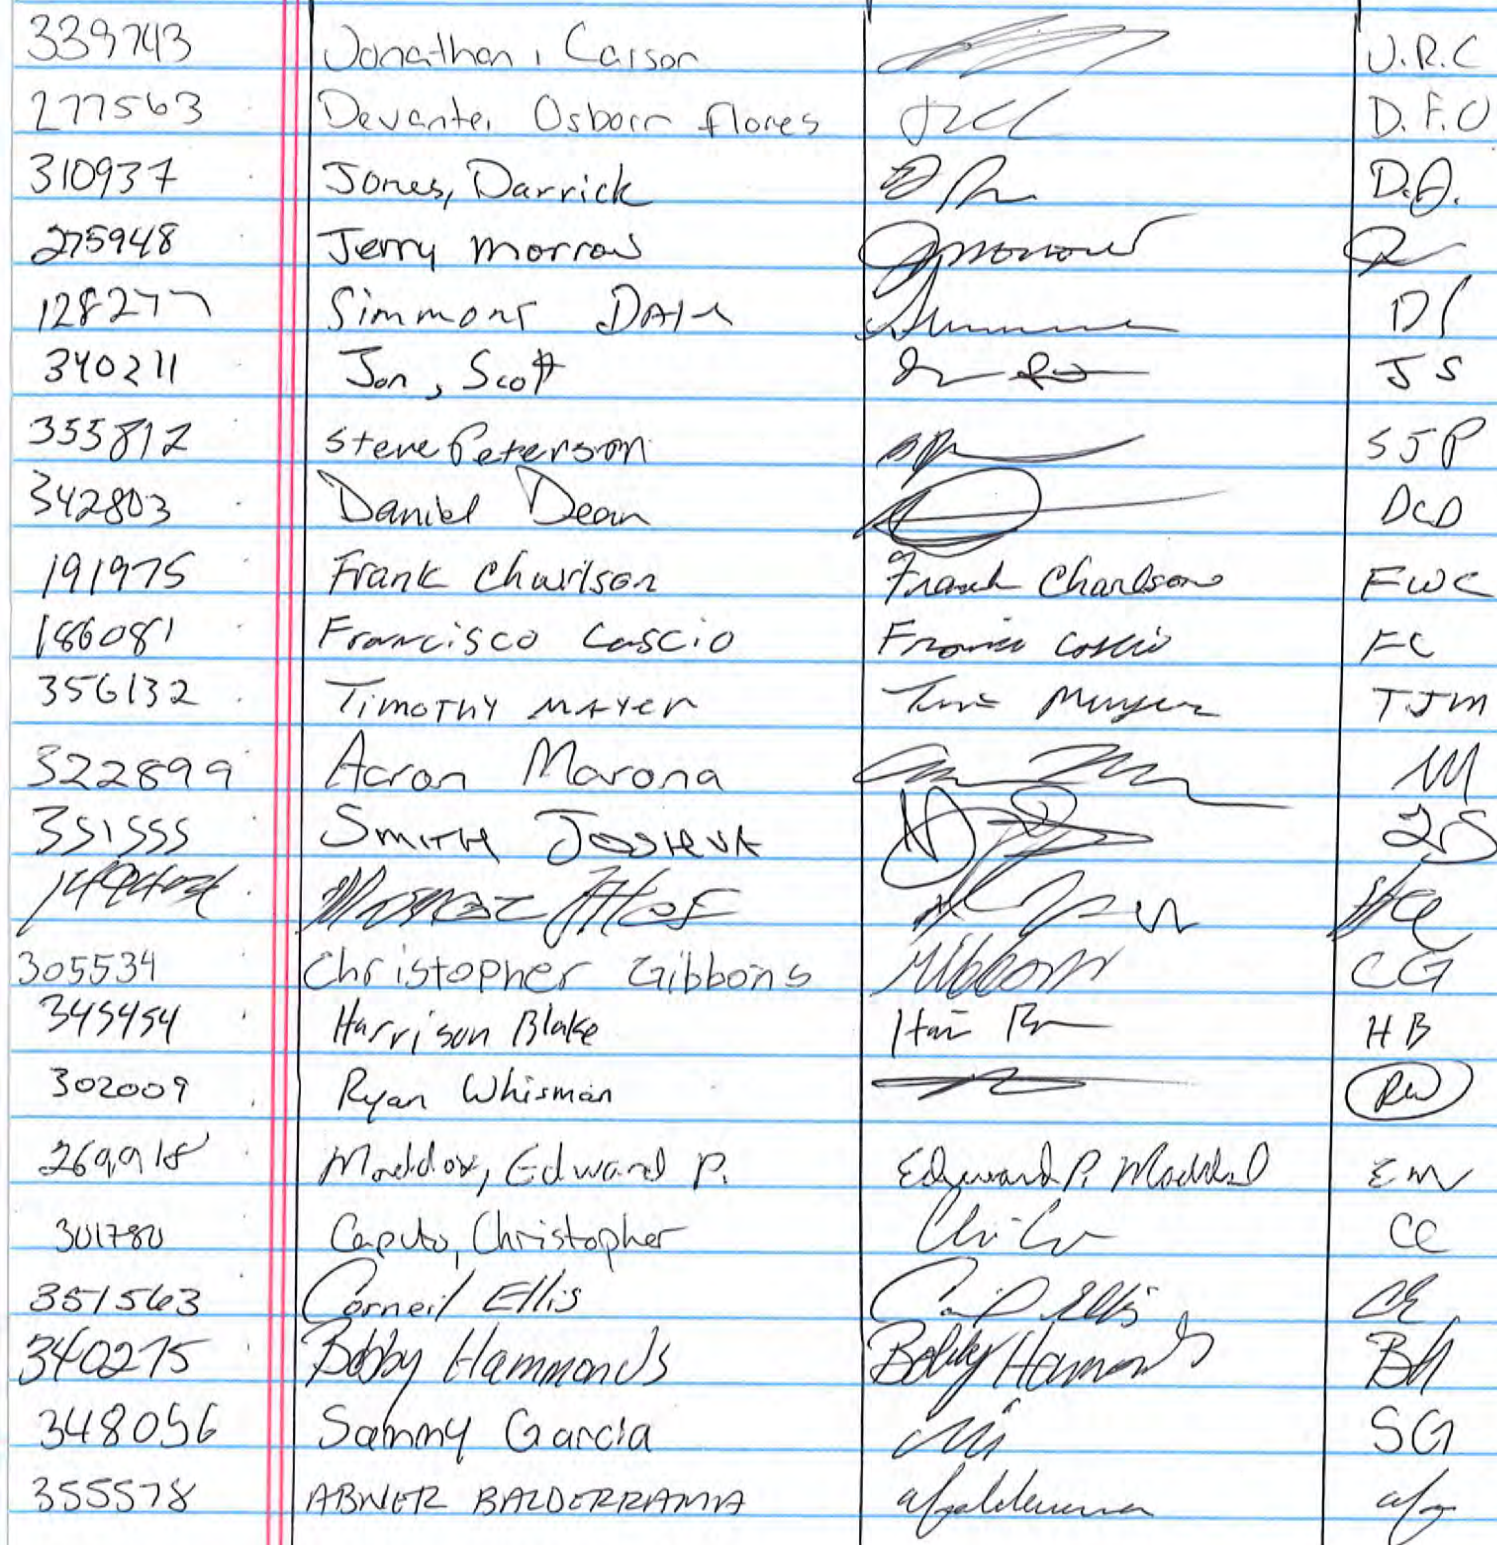 339743 Jonathan, Carson J.R.C
277563 Devante, Osborn flores D.F.O
310937 Jones, Darrick D.J.
275948 Jerry Morrow JMorrow
128277 Simmons DAle DS
340211 Jon, Scott JS
355812 Steve Peterson SJP
342803 Daniel Dean DCD
191975 Frank Charlson Frank Charlson FWC
186081 Francisco Cascio FC
356132 TIMOTHY MAYER Tim Mayer TJM
322899 Aaron Marona AM
351555 SMITH JOSHUA JS
305534 Christopher Gibbons Gibbons CG
345454 Harrison Blake HB
302009 Ryan Whisman RW
269918 Maddox, Edward P. Edward P. Maddox EM
301780 Caputo, Christopher CC
351563 Corneil Ellis Ellis CE
340275 Bobby Hammonds Bobby Hammonds BH
348056 Sammy Garcia SG
355578 ABNER BALDERRAMA